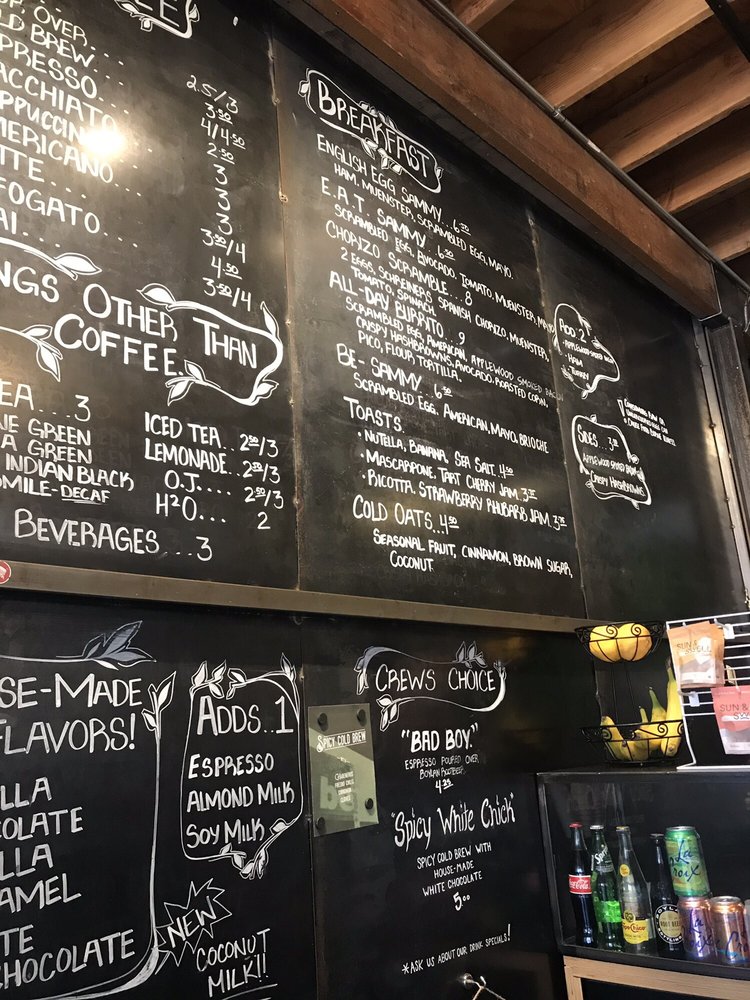 EE
OVER...
LD BREW... 2.5/3
PRESSO... 3.50
ACCHIATO... 4/4.50
PPUCCINO... 2.50
MERICANO... 3
TTE.... 3
FOGATO... 3
AI.... 3.50/4
4.50
3.50/4
NGS OTHER THAN
COFFEE...
EA...3
NE GREEN
A GREEN
INDIAN BLACK
OMILE-DECAF
ICED TEA...2.50/3
LEMONADE..2.50/3
O.J.... 2.50/3
H2O... 2
BEVERAGES...3
BREAKFAST
ENGLISH EGG SAMMY...6.50
HAM, MUENSTER, SCRAMBLED EGG, MAYO.
E.A.T. SAMMY...6.50
SCRAMBLED EGG, AVOCADO, TOMATO, MUENSTER, MAYO
CHORIZO SCRAMBLE...8
2 EGGS, SCHREINERS SPANISH CHORIZO, MUENSTER,
TOMATO, SPINACH.
ALL-DAY BURRITO...9
SCRAMBLED EGG, AMERICAN, APPLEWOOD SMOKED BACON
CRISPY HASHBROWNS, AVOCADO, ROASTED CORN,
PICO, FLOUR TORTILLA.
BE-SAMMY 6.50
SCRAMBLED EGG, AMERICAN, MAYO, BRIOCHE
TOASTS..
• NUTELLA, BANANA, SEA SALT. 4.50
• MASCARPONE, TART CHERRY JAM 3.75
• RICOTTA, STRAWBERRY RHUBARB JAM. 3.75
COLD OATS..4.50
SEASONAL FRUIT, CINNAMON, BROWN SUGAR,
COCONUT
ADD 2
• APPLEWOOD SMOKED BACON
• HAM
• TURKEY
SIDES...3.50
APPLEWOOD SMOKED BACON
CRISPY HASHBROWNS
SE-MADE
FLAVORS!
ILLA
COLATE
ILLA
AMEL
TE
CHOCOLATE
ADDS..1
ESPRESSO
ALMOND MILK
SOY MILK
NEW
COCONUT
MILK!!
SPICY COLD BREW
CREWS CHOICE
"BAD BOY."
ESPRESSO POURED OVER
BOYLAN ROOTBEER.
4.25
"Spicy White Chick"
SPICY COLD BREW WITH
HOUSE-MADE
WHITE CHOCOLATE
5.00
*ASK US ABOUT OUR DRINK SPECIALS!
SUN &
SUN &
Coca-Cola
Sprite
Topo Chico
BOYLAN
ROOT BEER
La
Croix
La